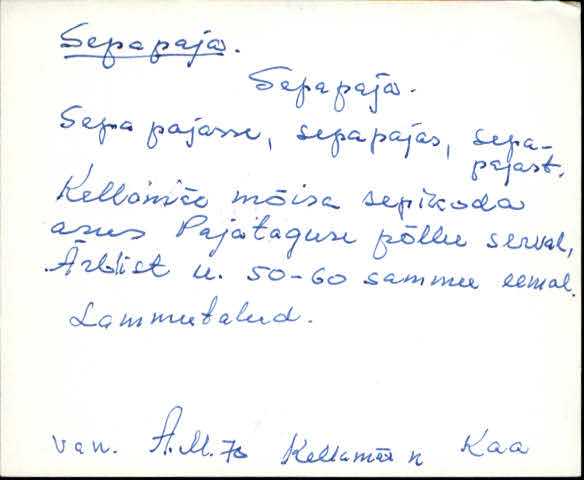 Sepapaja.
Sepapaja.
Sepa pajasse, sepapajas, sepa-
pajast.
Kellamäe mõisa sepikoda
asus Pajataguse põllu serval,
Ärblist u. 50-60 sammu eemal.
Lammutatud.
van. A.M. 76 Kellamäe k Kaa